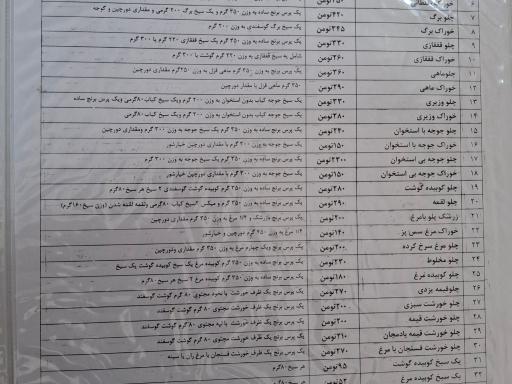 ۷ چلو برگ ۴۲۰تومن یک پرس برنج ساده به وزن ۳۵۰ گرم و یک سیخ برگ ۲۰۰ گرمی و مقداری دورچین و گوجه
۸ خوراک برگ ۳۴۵تومن یک سیخ برگ گوسفندی به وزن ۲۰۰ گرم
۹ چلو قفقازی ۳۳۰تومن یک پرس برنج ساده به وزن ۳۵۰ گرم یک سیخ قفقازی ۲۲۰ گرم یا ۳۰۰ گرم
۱۰ خوراک قفقازی ۲۶۰تومن شامل یه سیخ قفقازی به وزن ۲۲۰ گرم گوشت یا ۳۰۰ گرم
۱۱ چلوماهی ۳۶۰تومن یک پرس برنج ساده به وزن ۳۵۰ گرم ماهی قزل به وزن ۳۵۰گرم مقداری دورچین
۱۲ خوراک ماهی ۲۹۰تومن ۳۵۰ گرم ماهی قزل با مقدار دورچین
۱۳ چلو وزیری ۳۳۰تومن یک سیخ جوجه کباب بدون استخوان به وزن ۲۰۰ گرم ویک سیخ کباب ۸۰گرمی ویک پرس برنج ساده
۱۴ خوراک وزیری ۲۸۰تومن یک سیخ جوجه کباب بدون استخوان به وزن ۲۰۰ گرم ویک سیخ کباب ۸۰گرمی
۱۵ چلو جوجه با استخوان ۲۴۰تومن یک پرس برنج ساده به وزن ۳۵۰ گرم یک سیخ جوجه به وزن ۳۰۰ گرم ومقداری دورچین
۱۶ خوراک جوجه با استخوان ۱۵۰تومن یک سیخ جوجه به وزن ۳۰۰ گرم با مقداری دورچین خیارشور
۱۷ چلو جوجه بی استخوان ۲۳۰۰تومن یک پرس برنج ساده به وزن ۳۵۰ گرم یک سیخ جوجه به وزن ۲۰۰ گرم
۱۸ خوراک جوجه بی استخوان ۱۵۰تومن یک سیخ جوجه به وزن ۲۰۰ گرم با مقداری دورچین خیارشور
۱۹ چلو کوبیده گوشت ۲۸۰تومن یک پرس برنج ساده به وزن ۳۵۰ گرم کوبیده گوشت گوسفندی ۲ سیخ هر سیخ ۸۰گرم
۲۰ چلو لقمه ۲۹۰تومن یک پرس برنج ساده به وزن ۳۵۰ گرم
۲۱ زرشک پلو بامرغ ۲۰۰تومن یک پرس برنج بازرشک و ۱/۴ مرغ به وزن ۳۵۰ گرم
۲۲ خوراک مرغ سس پز ۱۴۰تومن ۱/۴ مرغ به وزن ۳۵۰ گرم دورچین و خیارشور
۲۳ چلو مرغ سرخ کرده ۲۰۰تومن یک پرس برنج ویک چهارم مرغ به وزن ۳۵۰ گرم مقداری ودورچین
۲۴ چلو مخلوط ۲۳۰تومن یک پرس برنج ساده به وزن ۳۵۰ گرم کوبیده مرغ یک سیخ کوبیده گوشت یک سیخ
۲۵ چلو کوبیده مرغ ۱۸۰تومن یک پرس برنج ساده به وزن ۳۵۰ گرم کوبیده مرغ ۲ سیخ هر سیخ ۸۰گرم
۲۶ چلوقیمه یزدی ۲۷۰تومن یک پرس برنج یک ظرف خورشت با نخود محتوی ۸۰ گرم گوشت گوسفند
۲۷ چلو خورشت سبزی ۲۰۰تومن یک پرس برنج یک ظرف خورشت محتوی ۸۰ گرم گوشت گوسفند
۲۸ چلو خورشت قیمه ۲۰۰تومن یک پرس برنج یک ظرف خورشت با لپه محتوی ۸۰ گرم گوشت گوسفند
۲۹ چلو خورشت قیمه بادمجان ۲۱۰تومن یک پرس برنج یک ظرف خورشت محتوی ۸۰ گرم گوشت گوسفند
۳۰ چلو خورشت فسنجان با مرغ ۲۷۰تومن یک پرس برنج یک ظرف خورشت فسنجان با مرغ ران یا سینه
۳۱ یک سیخ کوبیده گوشت ۹۵تومن هر سیخ ۸۰گرم
۳۲ یک سیخ کوبیده مرغ ۵۲تومن